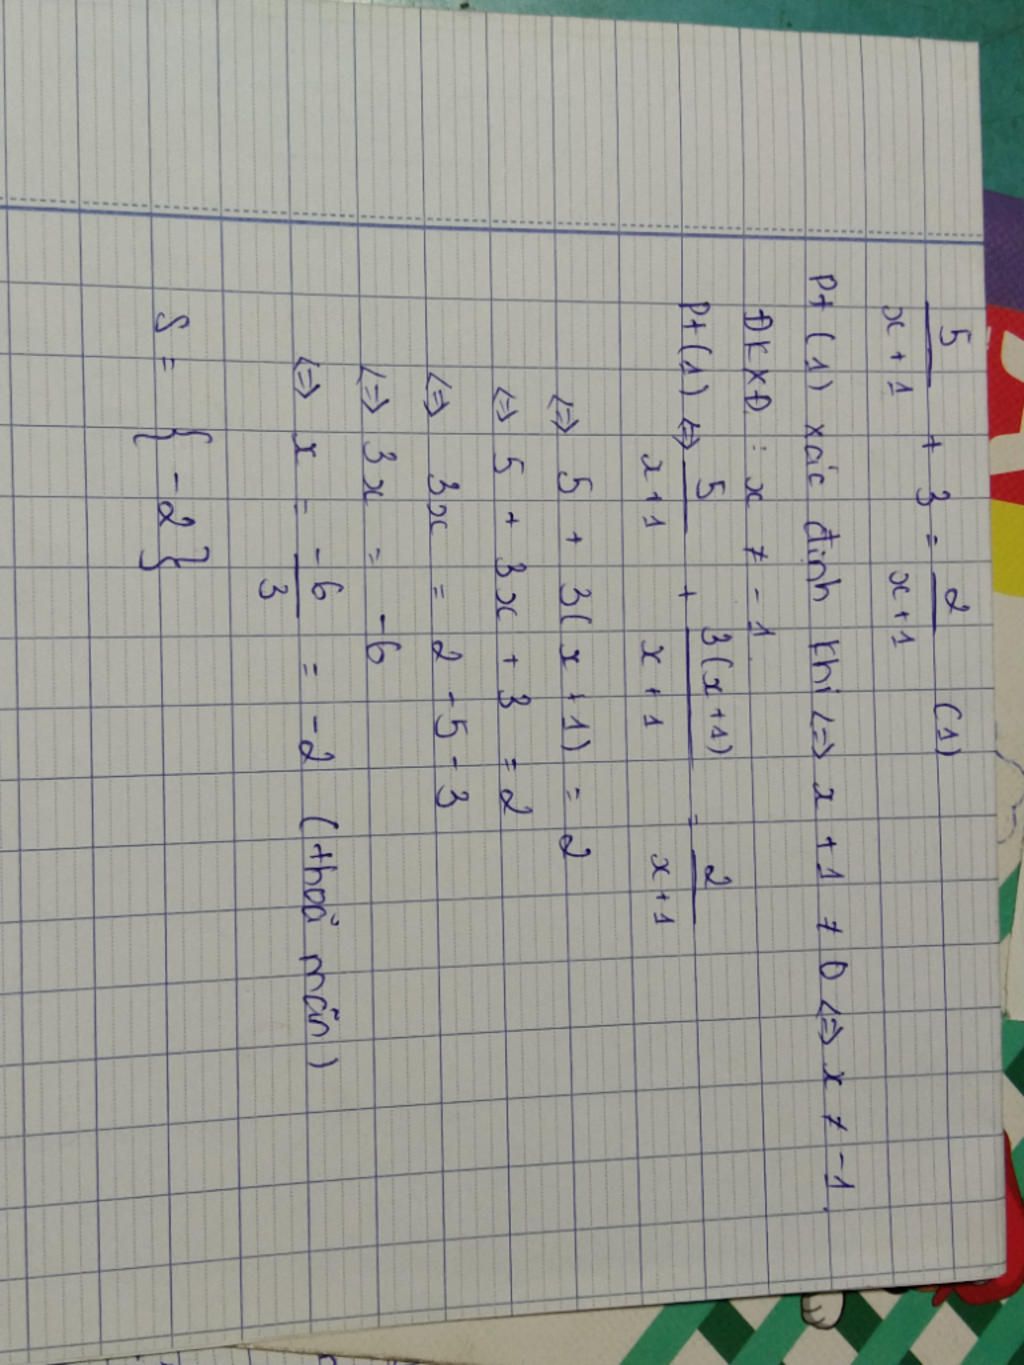 5/(x+1) + 3 = 2/(x+1) (1)
Pt (1) xác định khi <=> x + 1 ≠ 0 <=> x ≠ -1
ĐKXĐ : x ≠ -1
Pt (1) <=> 5/(x+1) + 3(x+1)/(x+1) = 2/(x+1)
<=> 5 + 3(x + 1) = 2
<=> 5 + 3x + 3 = 2
<=> 3x = 2 - 5 - 3
<=> 3x = -6
<=> x = -6/3 = -2 (thoả mãn)
S = { -2 }